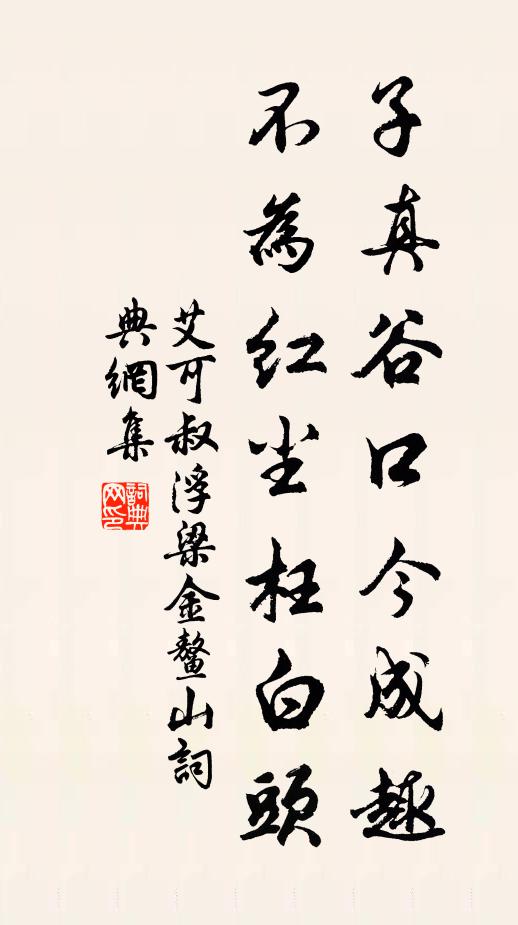 子真谷口今成趣
不為红尘枉白頭
艾可叔浮梁金鳌山詞
典網集
詞典
网印